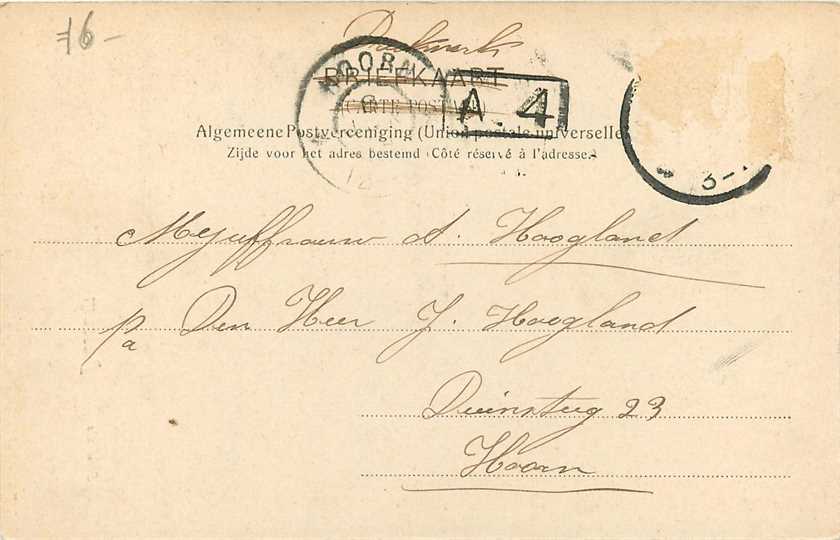 16-
Drukwerk
BRIEFKAART
CARTE POSTALE
HOORN
A 4
Algemeene Postvereeniging (Union postale universelle)
Zijde voor het adres bestemd (Côté réservé à l'adresse.)
3-
Mejuffrouw A. Hoogland
p/a Den Heer J. Hoogland
Duinsteeg 23
Hoorn